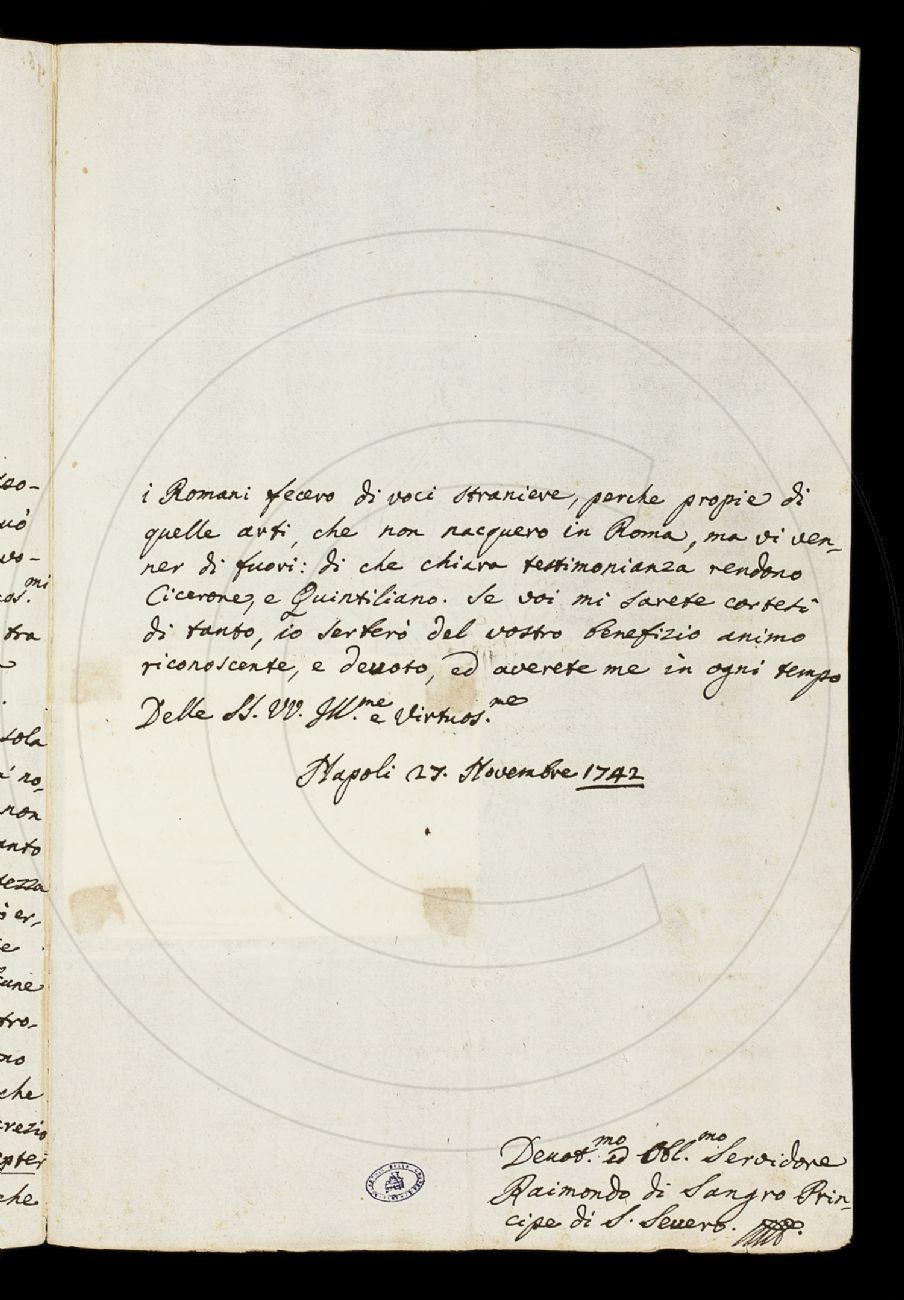 i Romani fecero di voci straniere, perche propie di
quelle arti, che non nacquero in Roma, ma vi ven-
ner di fuori: di che chiara testimonianza rendono
Cicerone, e Quintiliano. Se voi mi sarete cortesi
di tanto, io serberò del vostro benefizio animo
riconoscente, e devoto, ed averete me in ogni tempo
Delle SS. VV. Ill.me e Virtuos.me
Napoli 27. Novembre 1742
Devot.mo ed Obl.mo Servidore
Raimondo di Sangro Prin-
cipe di S. Severo.
mi
tra
sola
non
anto
tezza
che
che